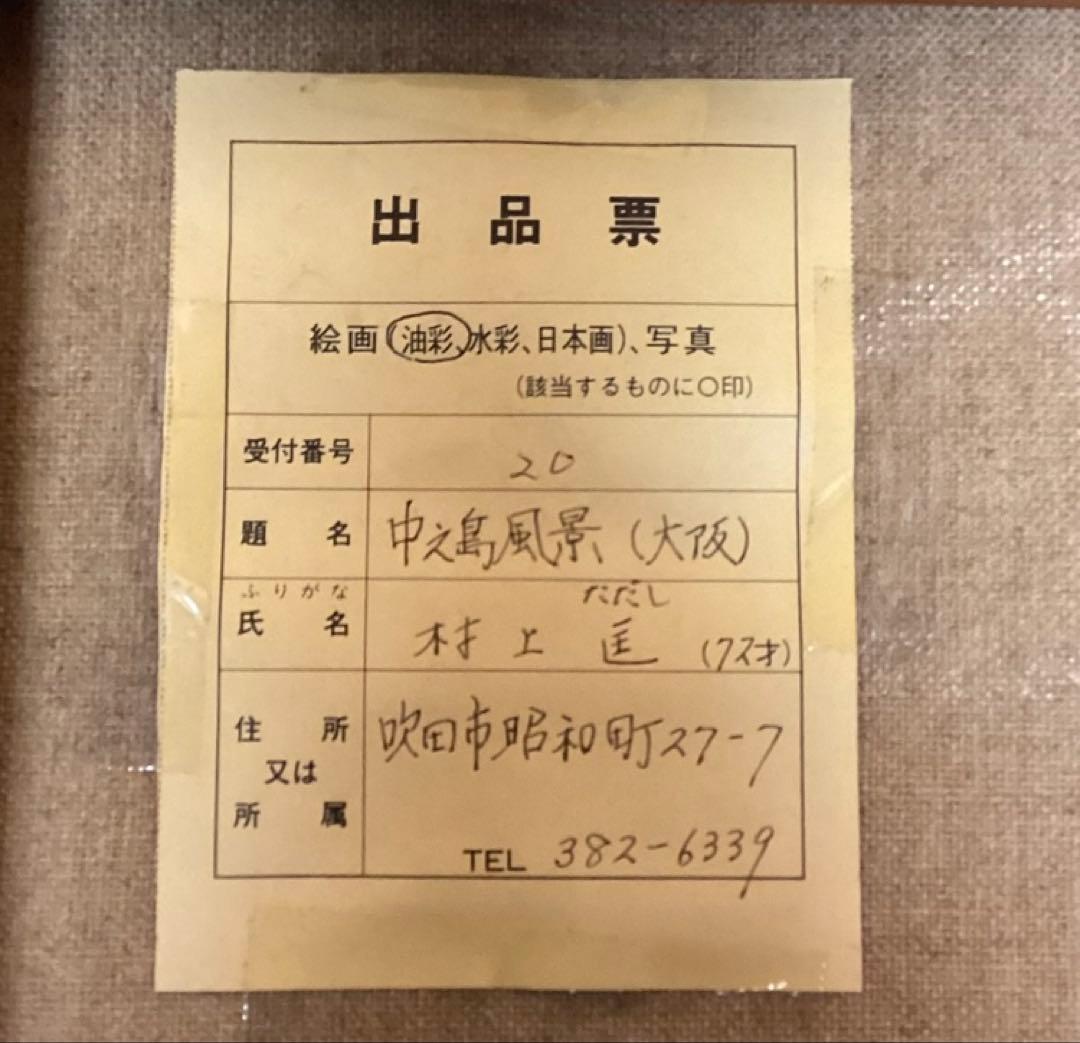 出品票
絵画(油彩、水彩、日本画)、写真
(該当するものに〇印)
受付番号 20
題名 中之島風景(大阪)
ふりがな ただし
氏名 村上 匡 (72才)
住所 吹田市昭和町27-7
又は
所属
TEL 382-6339